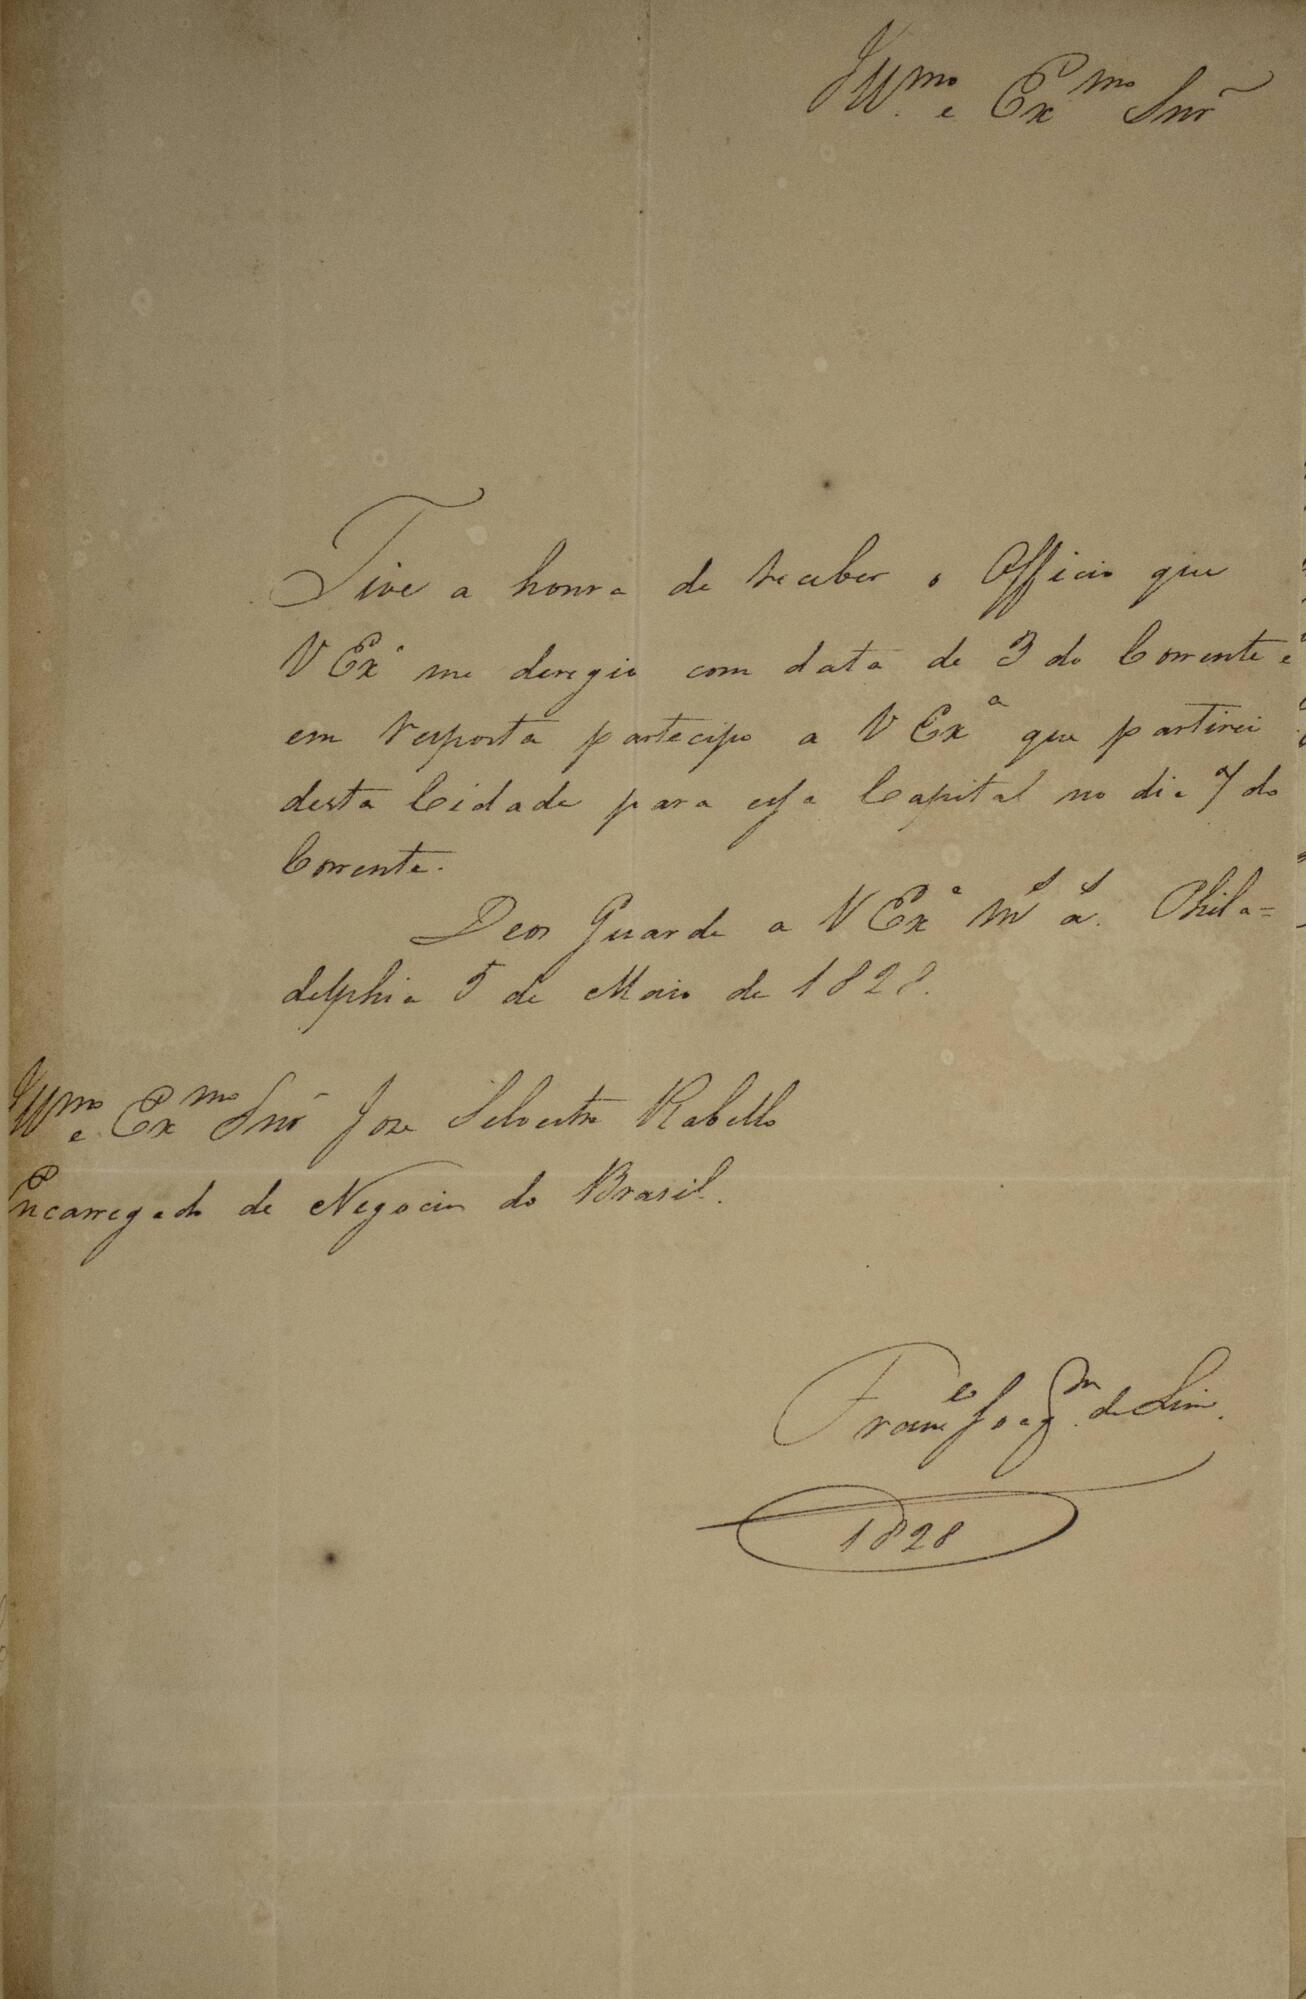 Illmo. e Exmo Snr
Tive a honra de receber o Officio que
V Exa me deregio com data de 3 do Corrente e
em resposta partecipo a V Exa que partirei
desta Cidade para essa Capital no dia 7 do
Corrente.
Deos Guarde a V Exa ms as. Phila=
delphia 5 de Maio de 1828.
Illmo e Exmo Snr Joze Silvestre Rabello
Encarregado de Negocios do Brasil.
Franco Joaqm. de Lima.
1828